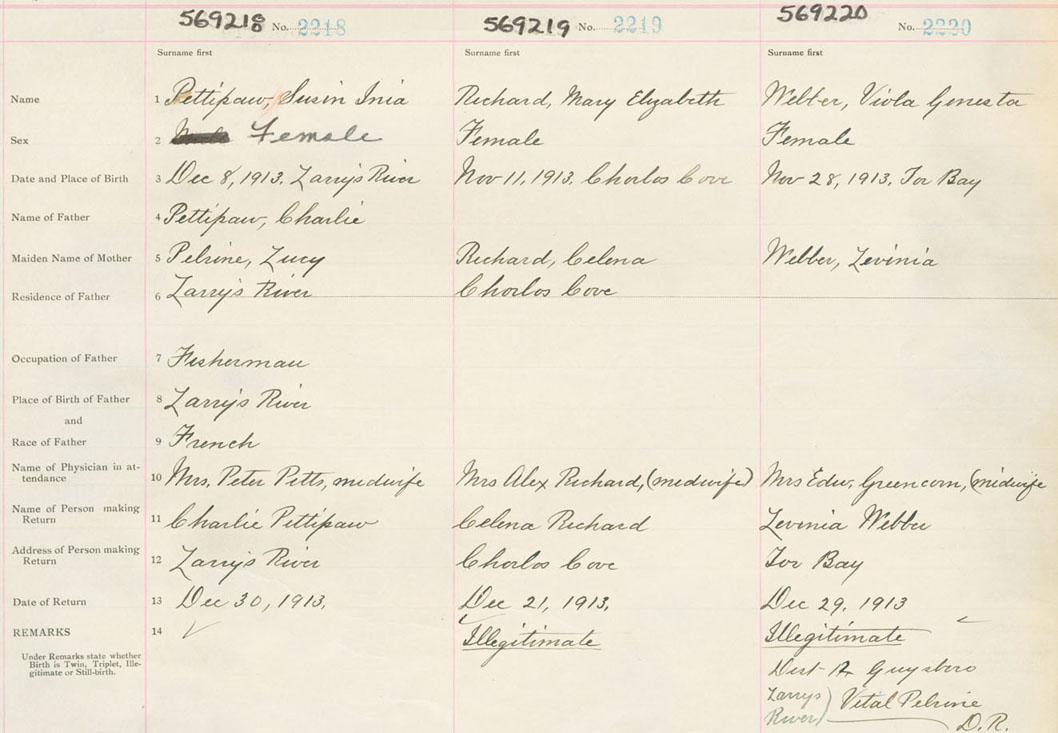 569218 No. 2218 569219 No. 2219 569220 No. 2220
Surname first Surname first Surname first
Name 1 Pettipaw, Susin Inia Richard, Mary Elizabeth Webber, Viola Genesta
Sex 2 Female Female Female
Date and Place of Birth 3 Dec 8, 1913. Larry's River Nov 11, 1913. Chorlos Cove Nov 28, 1913. Tor Bay
Name of Father 4 Pettipaw, Charlie
Maiden Name of Mother 5 Pelrine, Lucy Richard, Celena Webber, Levinia
Residence of Father 6 Larry's River Chorlos Cove
Occupation of Father 7 Fisherman
Place of Birth of Father 8 Larry's River
and
Race of Father 9 French
Name of Physician in at-
tendance 10 Mrs. Peter Petts, midwife Mrs Alex Richard, (midwife) Mrs Edw. Greencorn, (midwife
Name of Person making
Return 11 Charlie Pettipaw Celena Richard Levinia Webber
Address of Person making
Return 12 Larry's River Chorlos Cove Tor Bay
Date of Return 13 Dec 30, 1913. Dec 21, 1913. Dec 29. 1913
REMARKS 14 Illegitimate Illegitimate
Under Remarks state whether
Birth is Twin, Triplet, Ille-
gitimate or Still-birth.
Dist Guysboro
Larrys Vital Pelrine
River) D.R.